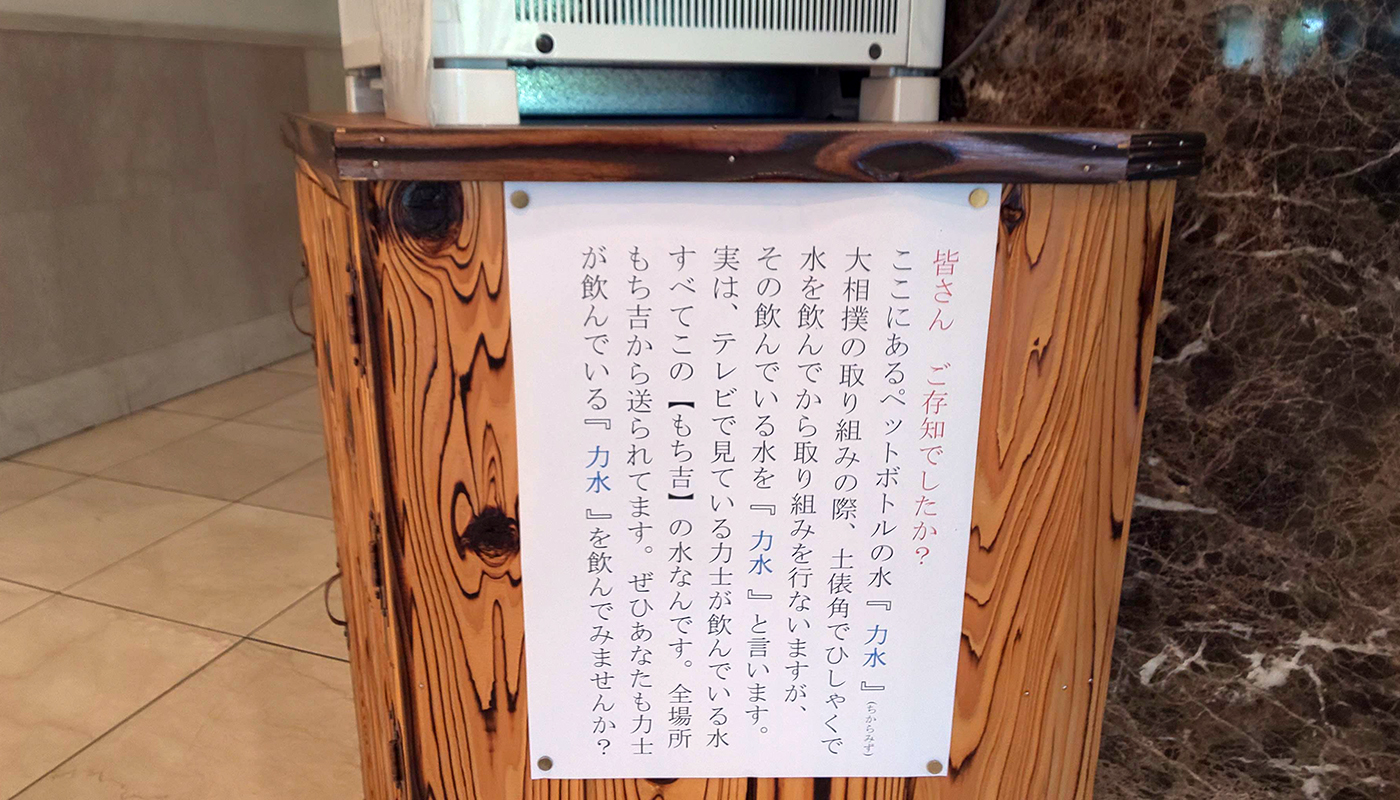 皆さん　ご存知でしたか？
ここにあるペットボトルの水『力水』（ちからみず）
大相撲の取り組みの際、土俵角でひしゃくで
水を飲んでから取り組みを行ないますが、
その飲んでいる水を『力水』と言います。
実は、テレビで見ている力士が飲んでいる水
すべてこの【もち吉】の水なんです。全場所
もち吉から送られてます。ぜひあなたも力士
が飲んでいる『力水』を飲んでみませんか？